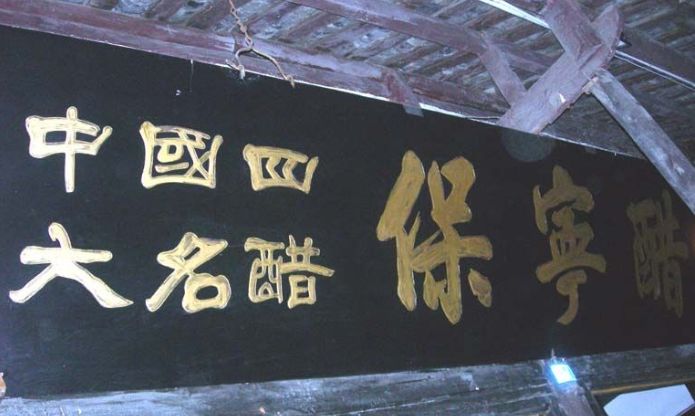 中國四
大名醋
保寧醋